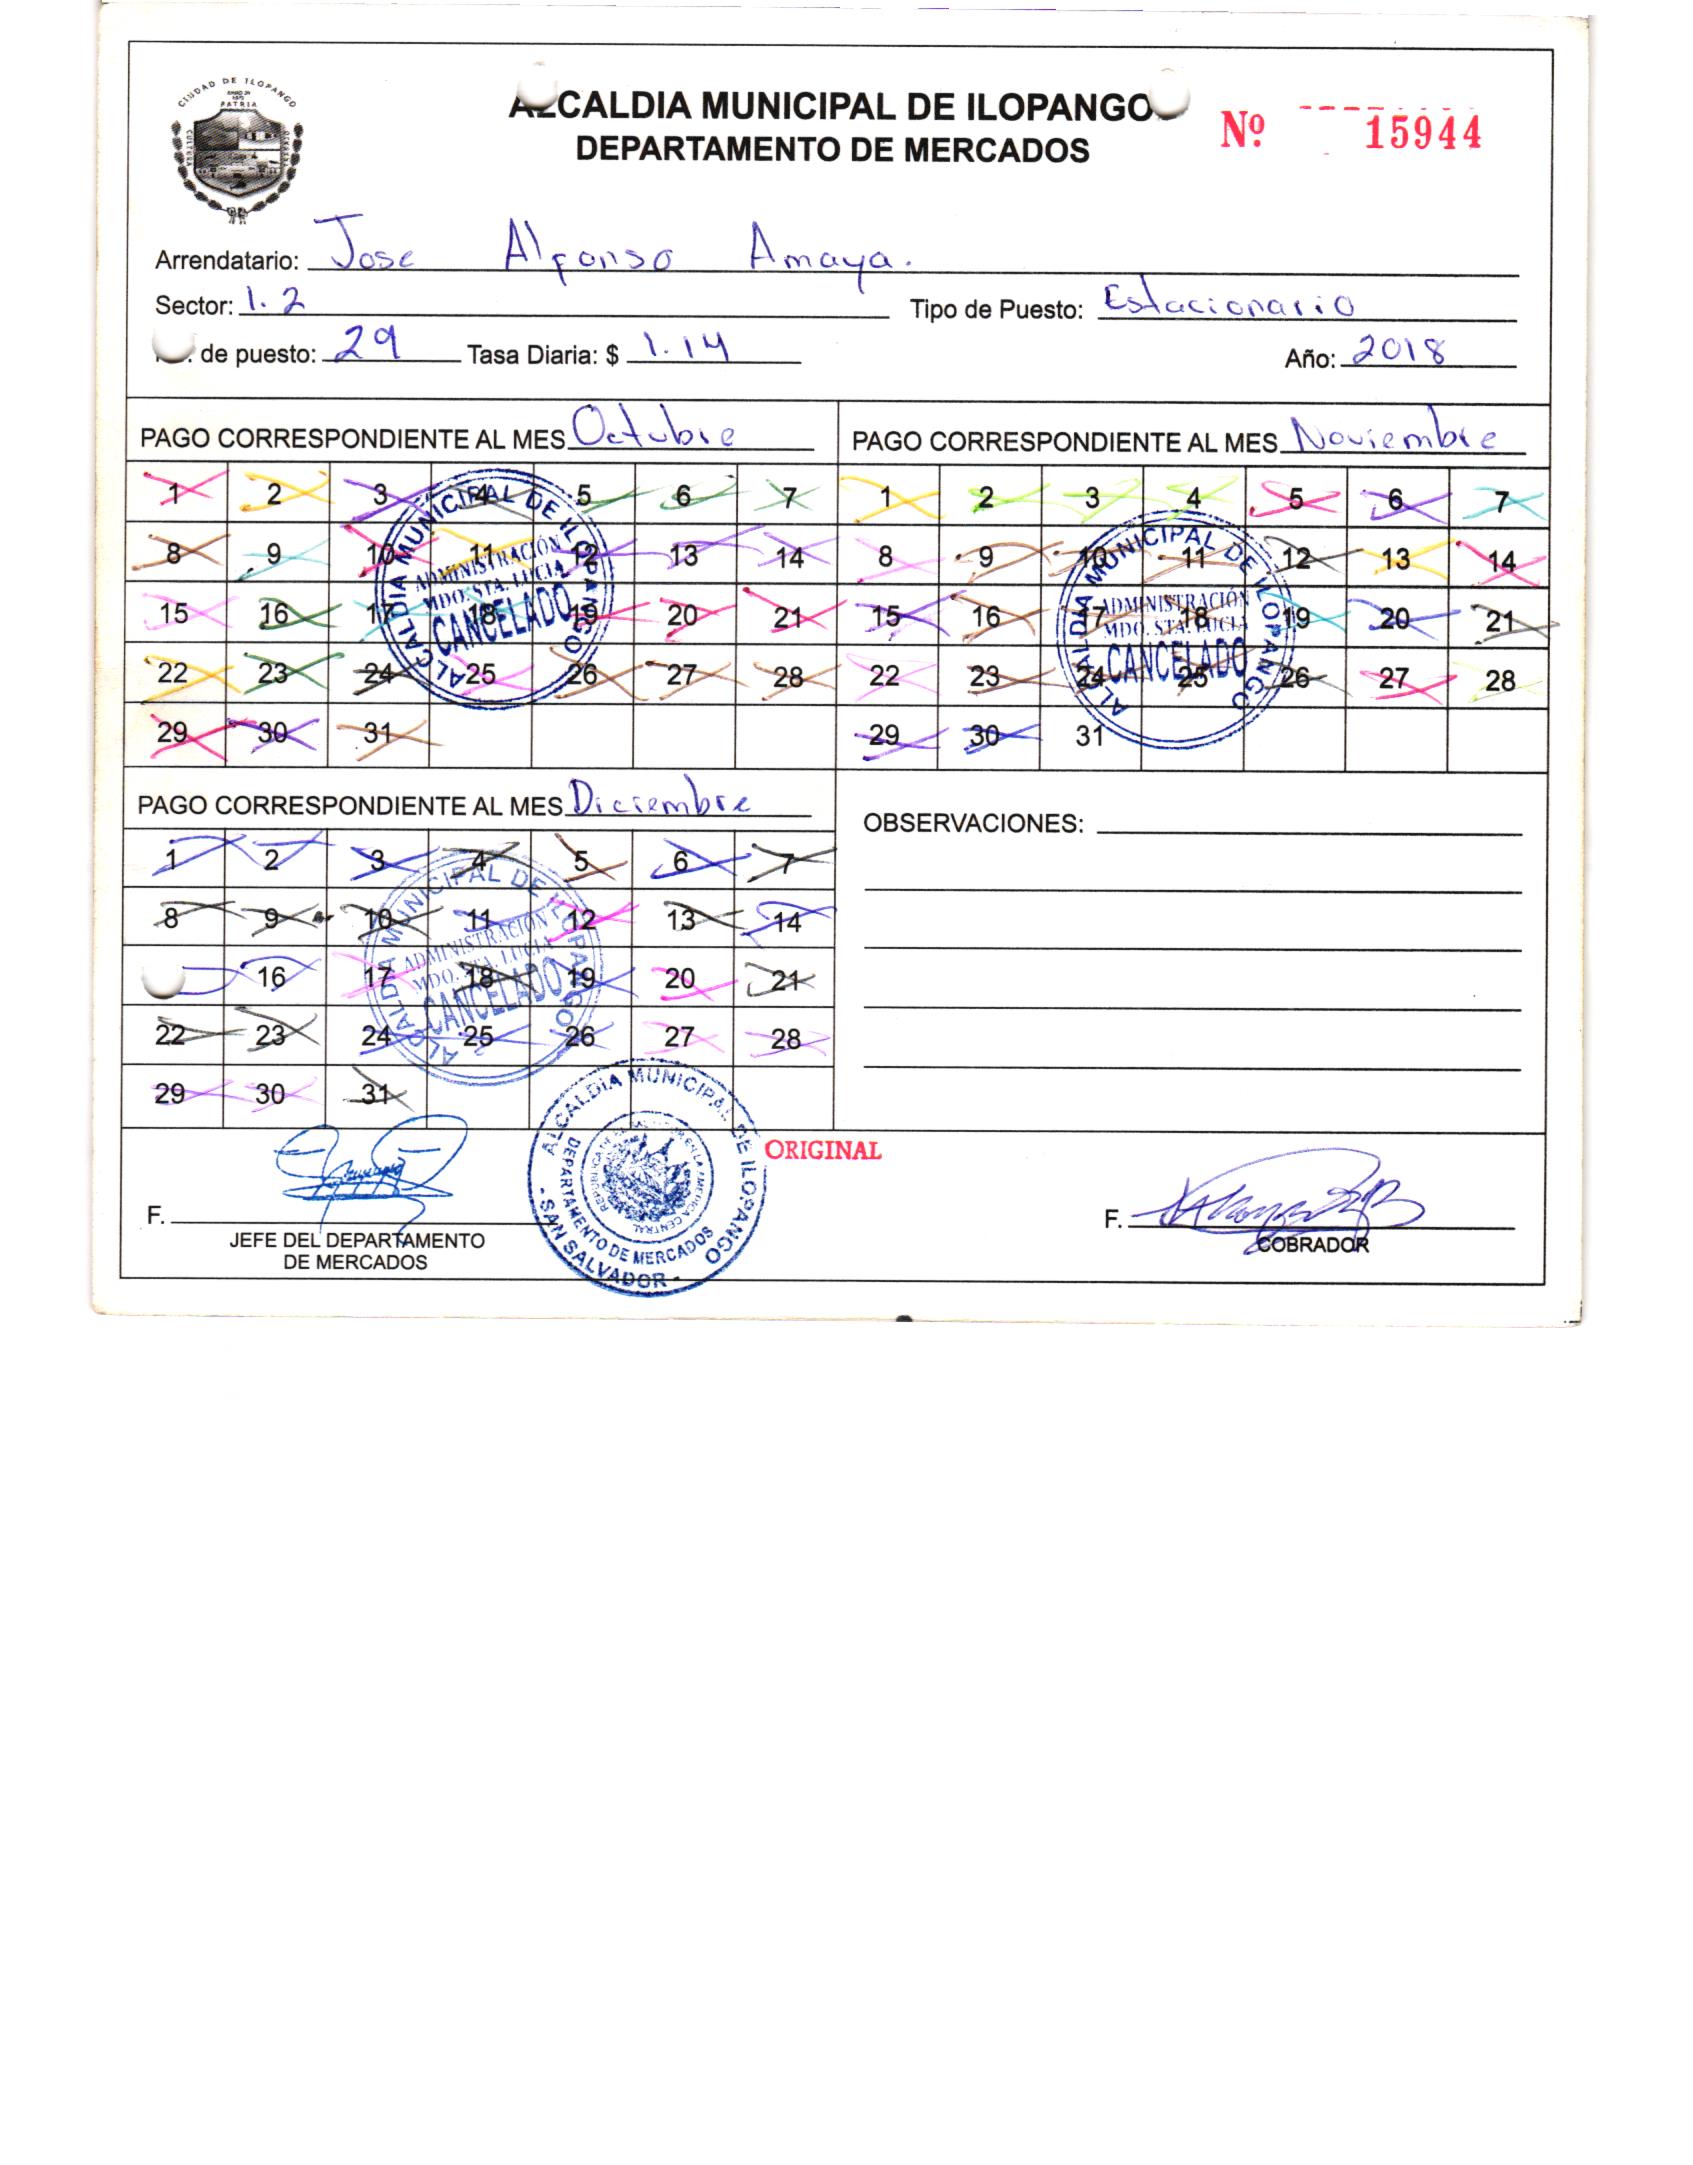 CIUDAD DE ILOPANGO
PATRIA
CULTURA
ALCALDIA MUNICIPAL DE ILOPANGO
DEPARTAMENTO DE MERCADOS
Nº 15944
Arrendatario: Jose Alfonso Amaya.
Sector: 1.2 Tipo de Puesto: Estacionario
de puesto: 29 Tasa Diaria: $ 1.14 Año: 2018
PAGO CORRESPONDIENTE AL MES Octubre
1 2 3 4 5 6 7
8 9 10 11 12 13 14
15 16 17 18 19 20 21
22 23 24 25 26 27 28
29 30 31
ALCALDIA MUNICIPAL DE ILOPANGO
ADMINISTRACIÓN
MDO. STA. LUCIA
CANCELADO
PAGO CORRESPONDIENTE AL MES Noviembre
1 2 3 4 5 6 7
8 9 10 11 12 13 14
15 16 17 18 19 20 21
22 23 24 25 26 27 28
29 30 31
ALCALDIA MUNICIPAL DE ILOPANGO
ADMINISTRACIÓN
MDO. STA. LUCIA
CANCELADO
PAGO CORRESPONDIENTE AL MES Diciembre
1 2 3 4 5 6 7
8 9 10 11 12 13 14
16 17 18 19 20 21
22 23 24 25 26 27 28
29 30 31
ALCALDIA MUNICIPAL DE ILOPANGO
ADMINISTRACIÓN
MDO. STA. LUCIA
CANCELADO
OBSERVACIONES:
F.
JEFE DEL DEPARTAMENTO
DE MERCADOS
ALCALDIA MUNICIPAL DE ILOPANGO
DEPARTAMENTO DE MERCADOS
- SAN SALVADOR -
ORIGINAL
F.
COBRADOR